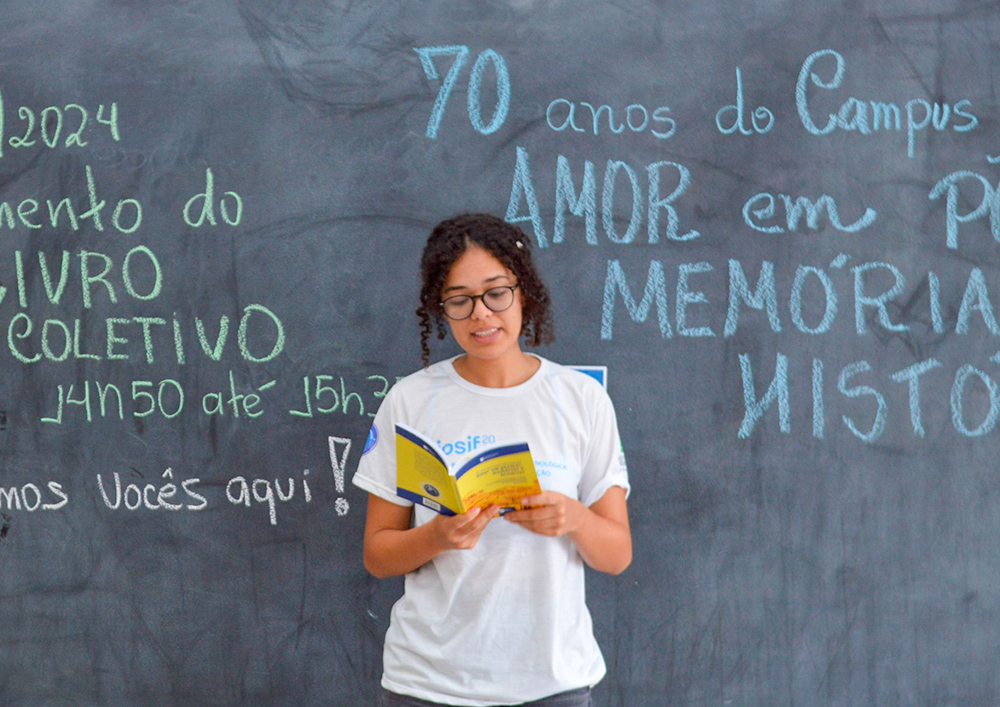 /2024
mento do
LIVRO
COLETIVO
14h50 até 15h3
mos Vocês aqui!
70 anos do Campus
AMOR em
MEMÓRIA
HISTÓ
iosif20